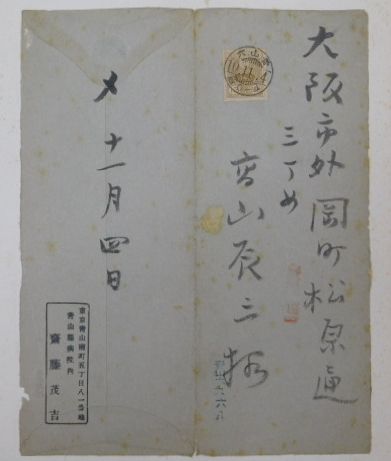 大阪市外岡町松原通
三丁め
高山辰三様
〆 十一月四日
東京青山南町五丁目八一番地
青山脳病院内
齋藤茂吉